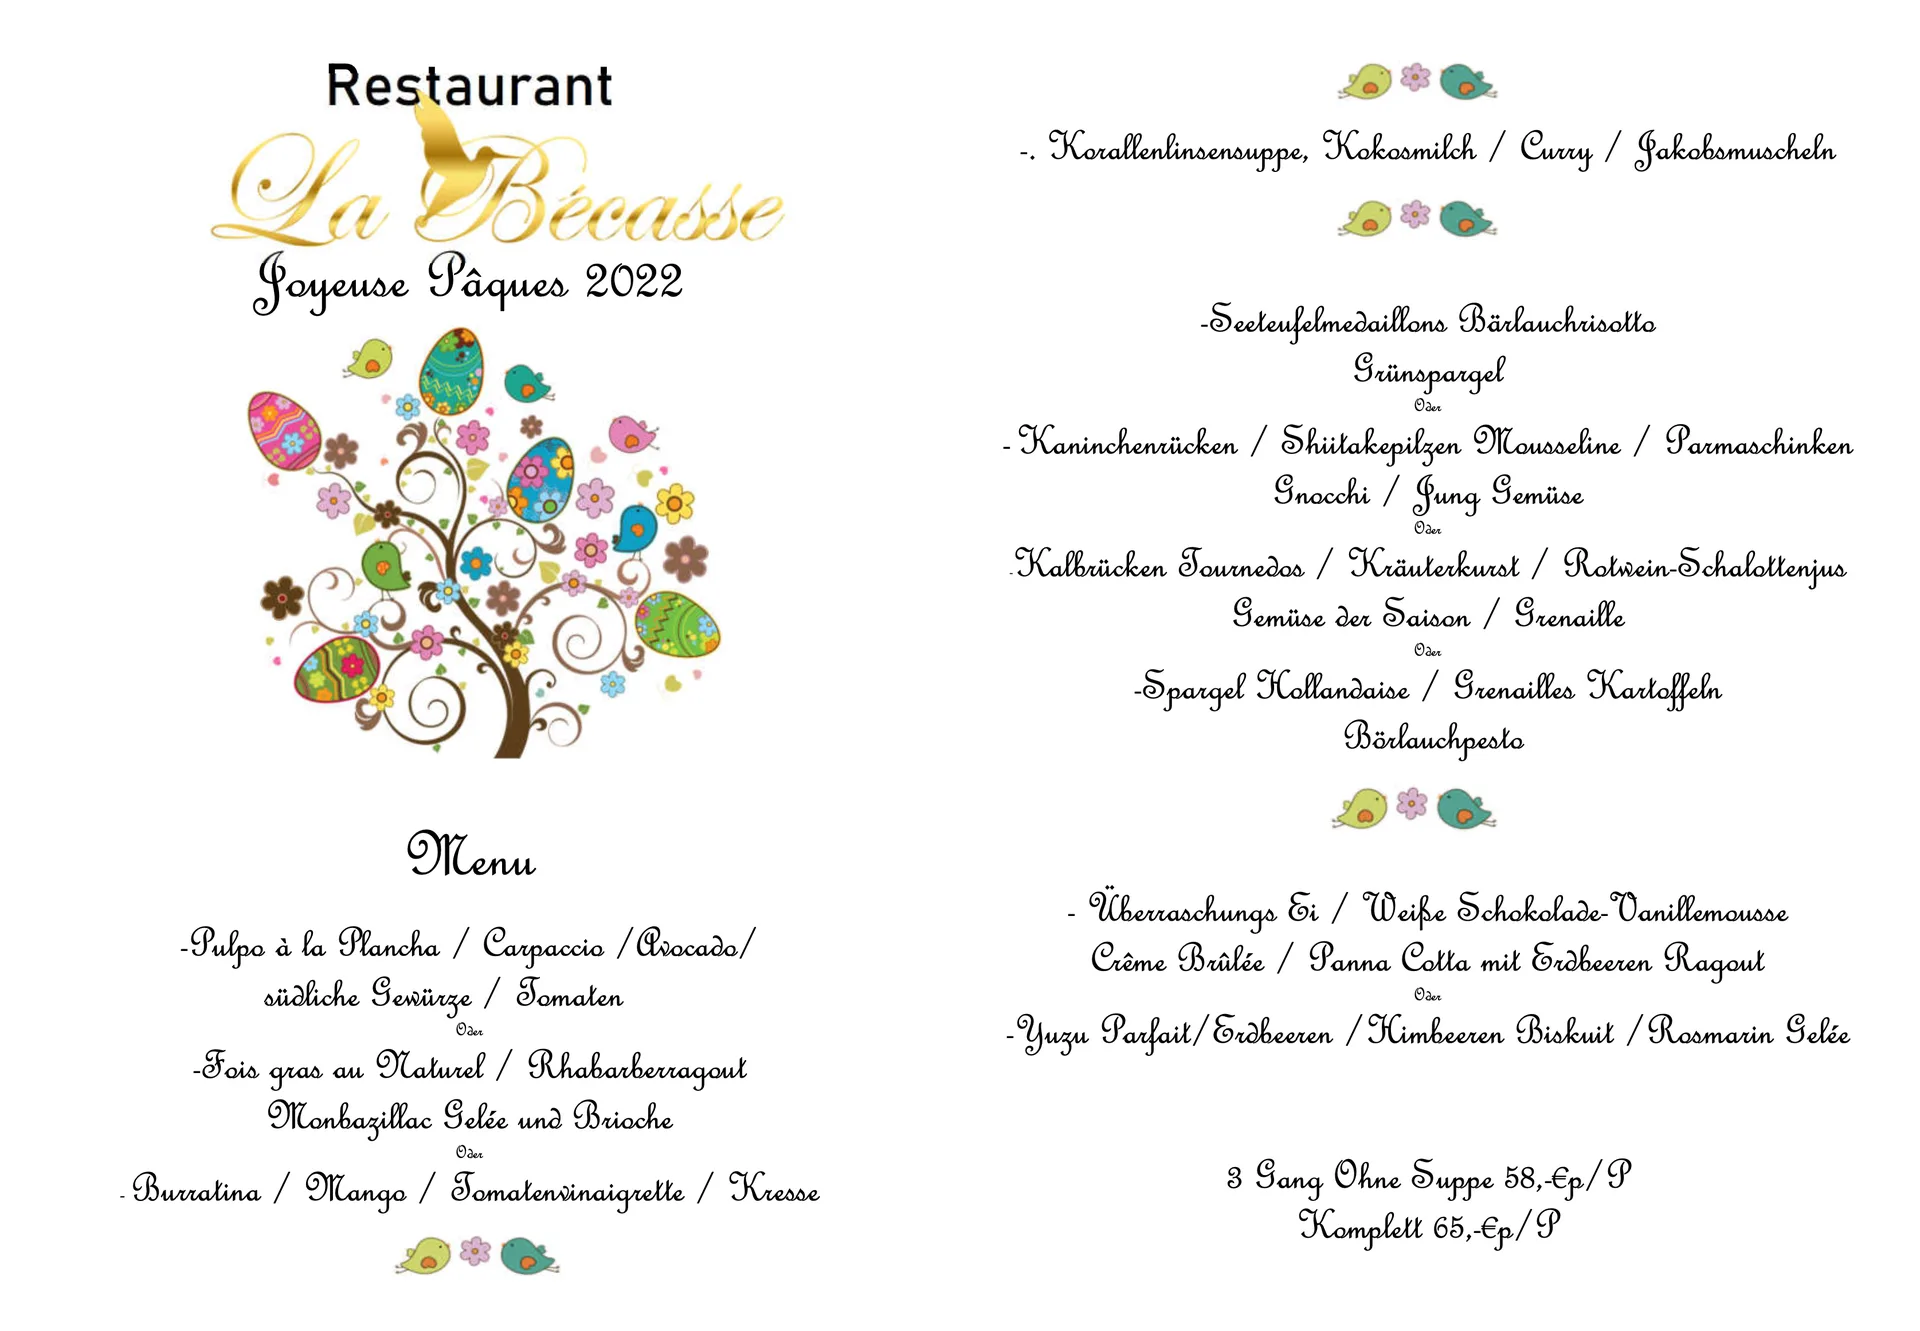 Restaurant
La Bécasse
Joyeuse Pâques 2022
Menu
-Pulpo à la Plancha / Carpaccio /Avocado/
südliche Gewürze / Tomaten
Oder
-Fois gras au Naturel / Rhabarberragout
Monbazillac Gelée und Brioche
Oder
- Burratina / Mango / Tomatenvinaigrette / Kresse
-. Korallenlinsensuppe, Kokosmilch / Curry / Jakobsmuscheln
-Seeteufelmedaillons Bärlauchrisotto
Grünspargel
Oder
- Kaninchenrücken / Shiitakepilzen Mousseline / Parmaschinken
Gnocchi / Jung Gemüse
Oder
- Kalbrücken Tournedos / Kräuterkurst / Rotwein-Schalottenjus
Gemüse der Saison / Grenaille
Oder
-Spargel Hollandaise / Grenailles Kartoffeln
Börlauchpesto
- Überraschungs Ei / Weiße Schokolade-Vanillemousse
Crême Brûlée / Panna Cotta mit Erdbeeren Ragout
Oder
-Yuzu Parfait/Erdbeeren /Himbeeren Biskuit /Rosmarin Gelée
3 Gang Ohne Suppe 58,-€p/P
Komplett 65,-€p/P